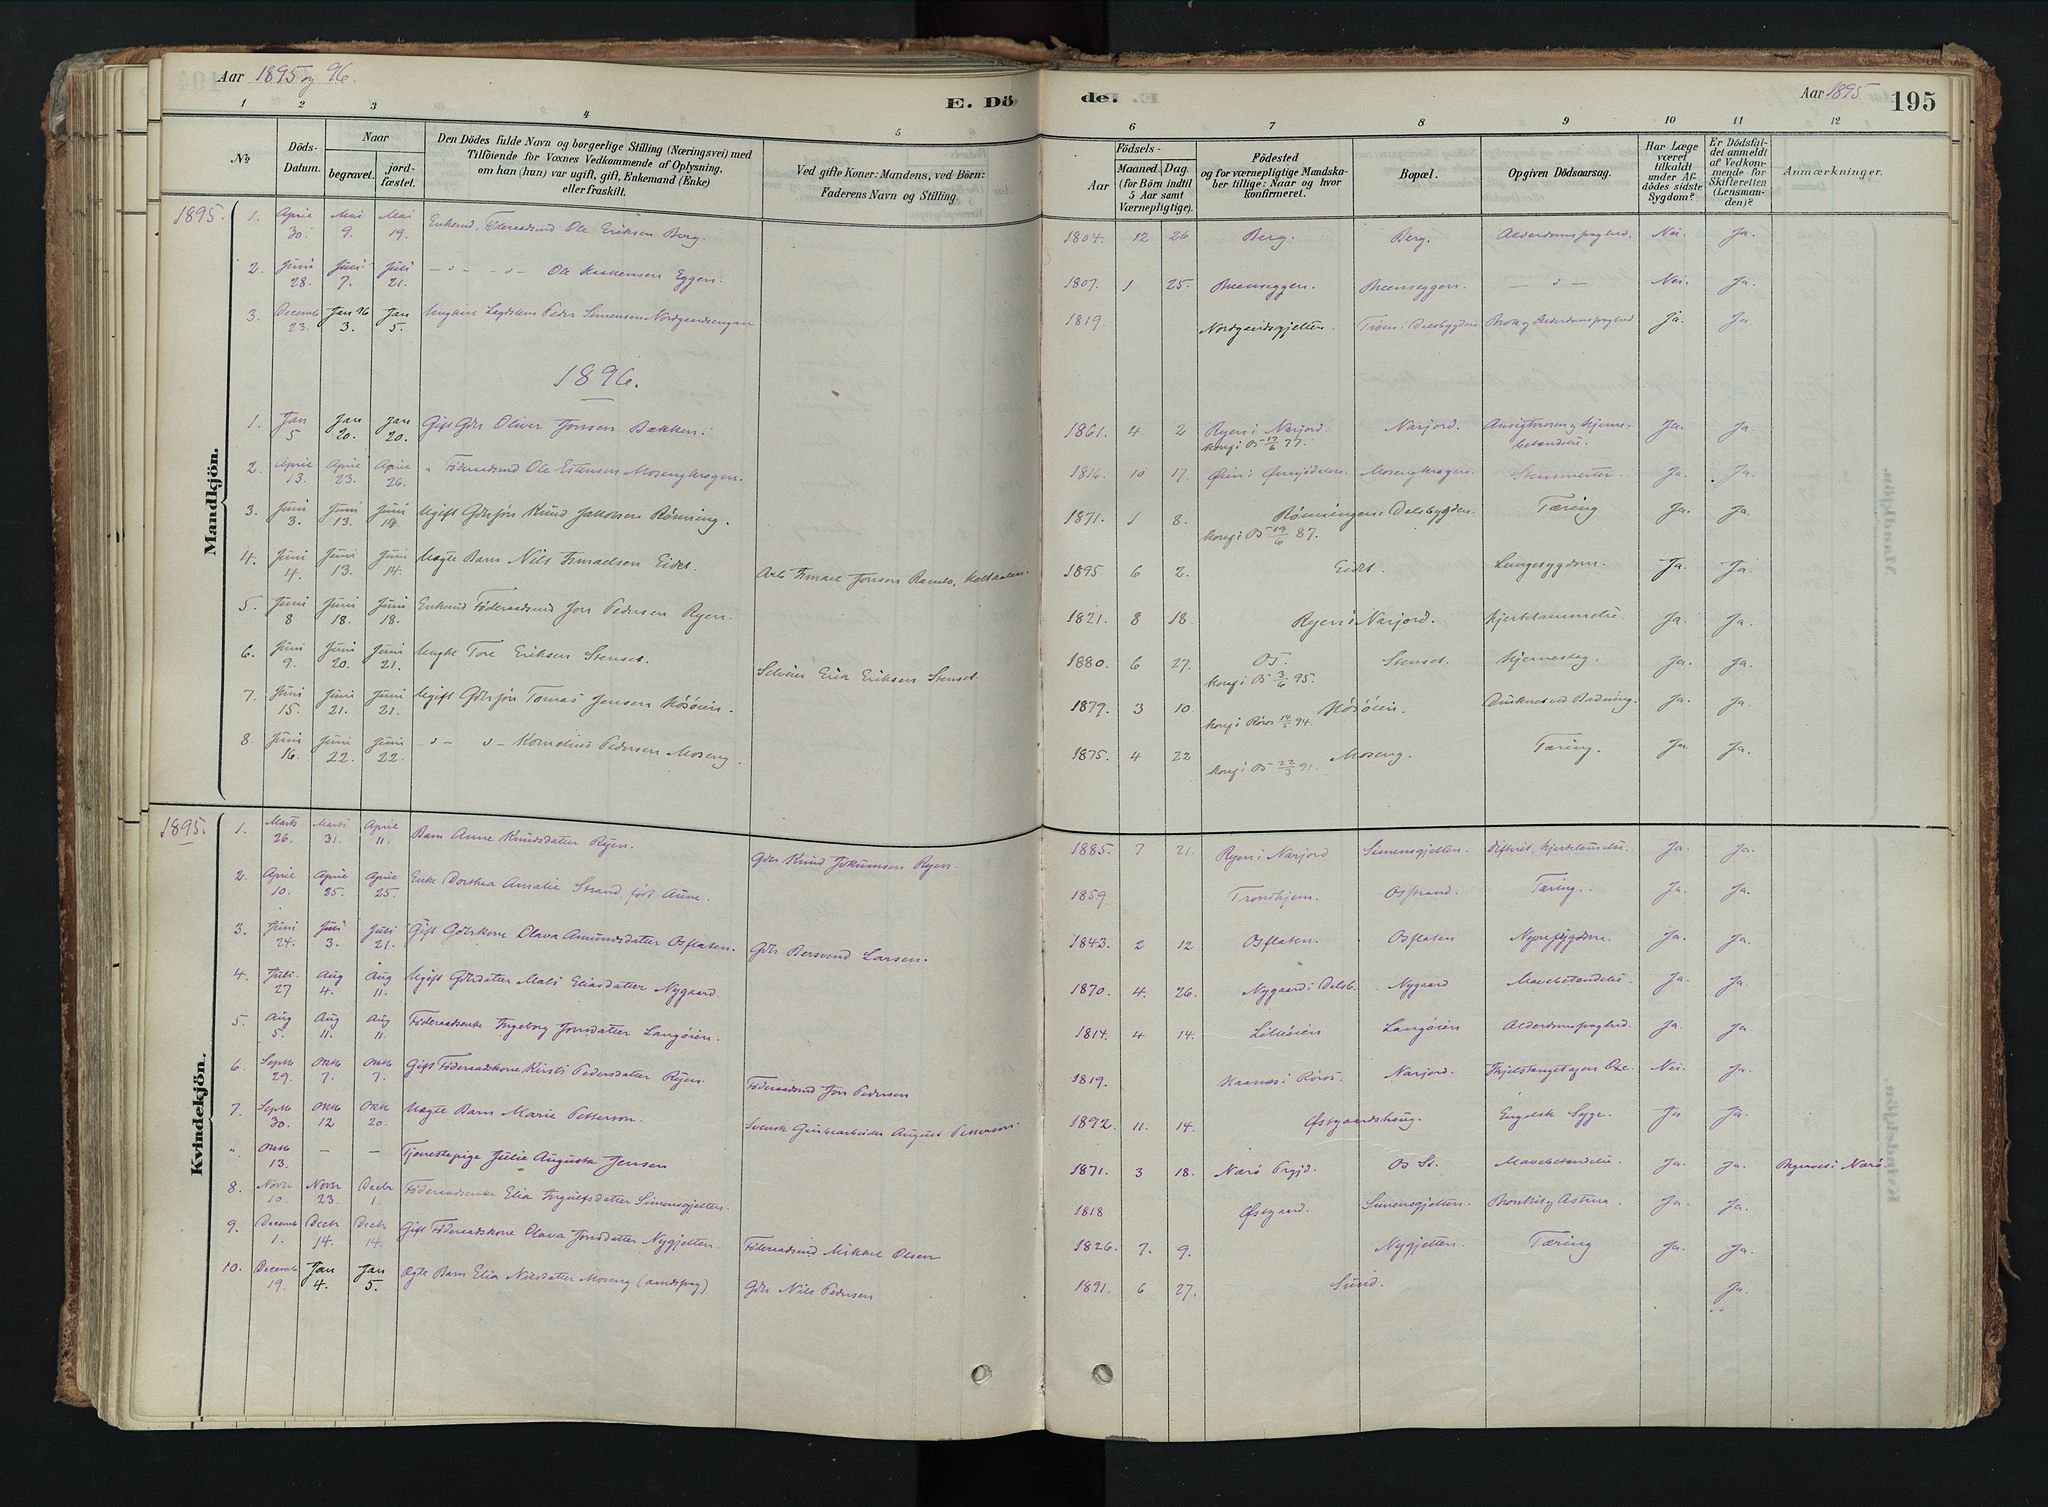 Aar 1895 og 96.
E. Dö
de.
Aar 1895
195
1 2 3 4 5 6 7 8 9 10 11 12
No.
Döds-Datum.
Naar
begravet.
jord-fæstet.
Den Dödes fulde Navn og borgerlige Stilling (Næringsvei) med
Tilföiende for Voxnes Vedkommende af Oplysning,
om han (hun) var ugift, gift, Enkemand (Enke)
eller fraskilt.
Ved gifte Koner: Mandens, ved Börn:
Faderens Navn og Stilling
Födsels-
Aar
Maaned Dag.
(for Börn indtil
5 Aar samt
Værnepligtige).
Födested
og for værnepligtige Mandska-
ber tillige: Naar og hvor
konfirmeret.
Bopæl.
Opgiven Dödsaarsag.
Har Læge
været
tilkaldt
under Af-
dödes sidste
Sygdom?
Er Dödsfal-
det anmeldt
af Vedkom-
mende for
Skifteretten
(Lensman-
den)?
Anmærkninger.
Mandkjön.
1895. 1. April 30. Mai 9. Mai 19. Enkemd. Föderaadsmd Ole Eriksen Berg. 1804. 12 26 Berg. Berg. Alderdomssvaghed. Nei. Ja.
2. Juni 28. Juli 7. Juli 21. — " — " — Ole Haakensen Eggen. 1807. 1 25. Eggen. Eggen. — " — Nei. Ja.
3. Decemb 23. Jan 96 3. Jan 5. Ungkarl Lægdslem Peder Simensen Nordgaardsengan 1819. Nordgaardsgjelten. Dalsbygden Alderdomssvaghed Ja. Ja.
1896.
1. Jan 5 Jan 20. Jan 20. Gift Gdbr Oliver Jonsen Bakken. 1861. 4 2 Ryen i Narjord. konf i Os 17/6 77. Narjord. Ja. Ja.
2. April 13. April 23. April 26. " Föderaadsmd Ole Estensen Mosengkrogen. 1816. 10 17. Öien i Mosengkrogen. Ja. Ja.
3. Juni 3. Juni 13. Juni 14. Ugift Gdbrsön Knud Jakobsen Rönning. 1871. 1 8. Rönningen i Dalsbygden. konf i Os 19/6 87. Tæring Ja. Ja.
4. Juni 4. Juni 13. Juni 14. Uægte Barn Nils Ismaelsen Eidet. Arb Ismael Jonsen Ramlo, Holtaalen. 1895 6 2. Eidet. Lungesygdom. Ja. Ja.
5. Juni 8 Juni 18. Juni 18. Enkemd Föderaadsmd Jon Pedersen Ryen. 1821. 8 18. Ryen i Narjord. Hjertelammelse. Ja. Ja.
6. Juni 9. Juni 20. Juni 21. Tore Eriksen Stenset. Selveier Erik Eriksen Stenset. 1880. 6 27. Os. konf i Os 3/6 95. Stenset. Hjerneslag. Ja. Ja.
7. Juni 15. Juni 21. Juni 21. Ugift Gdbrsön Tomas Jensen Hösöien. 1879. 3 10. Hösöien. konf i Röros 14/5 94. Druknet ved Badning. Ja. Ja.
8. Juni 16. Juni 22. Juni 22. — " — " — Kornelius Pedersen Moseng. 1875. 4 22 Moseng. konf i Os 22/3 91. Tæring. Ja. Ja.
Kvindekjön.
1895. 1. Marts 26. Marts 31. April 11. Barn Anne Knudsdatter Ryen. Gdbr Knud Jokumsen Ryen. 1885. 7 21. Ryen i Narjord Simensgjelten. Difterit, Hjertelammelse. Ja. Ja.
2. April 10. April 25. April 25. Enke Dorthea Amalie Strand, född Aune. 1859. Trondhjem. Osstrand. Tæring. Ja. Ja.
3. Juni 24. Juli 3. Juli 21. Gift Gdbrkone Olava Amundsdatter Osflaten. Gdbr Bersvend Larsen. 1843. 2 12 Osflaten. Osflaten Nyresygdom. Ja. Ja.
4. Juli 27 Aug 4. Aug 11. Ugift Gdbrdatter Mali Eliasdatter Nygaard. 1870. 4. 26. Nygaard i Dalsb. Nygaard Mavebetændelse. Ja. Ja.
5. Aug 5. Aug 11. Aug 11. Föderaadsenke Ingeborg Jonsdatter Langöien. 1814. 4 14. Lilleöien Langöien Alderdomssvaghed. Ja. Ja.
6. Septb 29. Oktb 7. Oktb 7. Gift Föderaadskone Kirsti Pedersdatter Ryen. Föderaadsmd Jon Pedersen 1819. Haanæs i Röros. Narjord. Nei. Ja.
7. Septb 30. Oktb 12 Oktb 20. Uægte Barn Marie Petterson. Svensk Grubearbeider August Petterson. 1892. 11. 14. Östgaardshoug. Engelsk Syge. Ja Ja.
" Oktb 13. — — Tjenestepige Julie Augusta Jensen 1871. 3 18. Nærö Prgjd. Os St. Mavebetændelse Ja. Ja. Begravet i Nærö.
8. Novb 10. Novb 23. Decbr 1. Föderaadsenke Elia Ingulfsdatter Simensgjelten. 1818 Östgaard. Simensgjelten. Bronkit og Astma Ja. Ja.
9. Decemb 1. Decb 14. Decb 14. Gift Föderaadskone Olava Jonsdatter Nygjelten Föderaadsmd Mikkel Olsen 1826. 7. 9. Nygjelten. Tæring Ja. Ja.
10. Decemb 19. Jan 4. Jan 5. Ægte Barn Elia Nilsdatter Moseng (aandssvag) Gdbr Nils Pedersen 1891. 6 27. Sund. Ja.